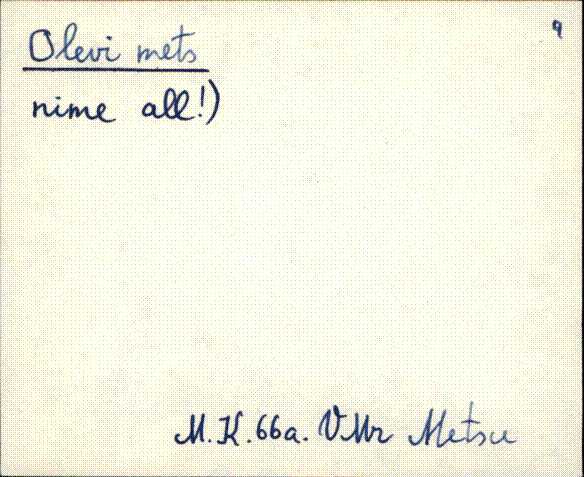 9
Olevi mets
nime all!)
M.K.66a. VMr Metsu